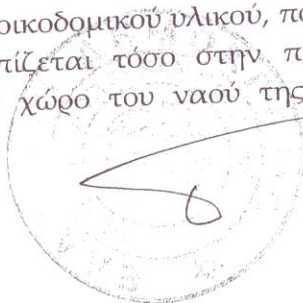 οικοδομικού υλικού, πα
πίζεται τόσο στην π
χώρο του ναού της